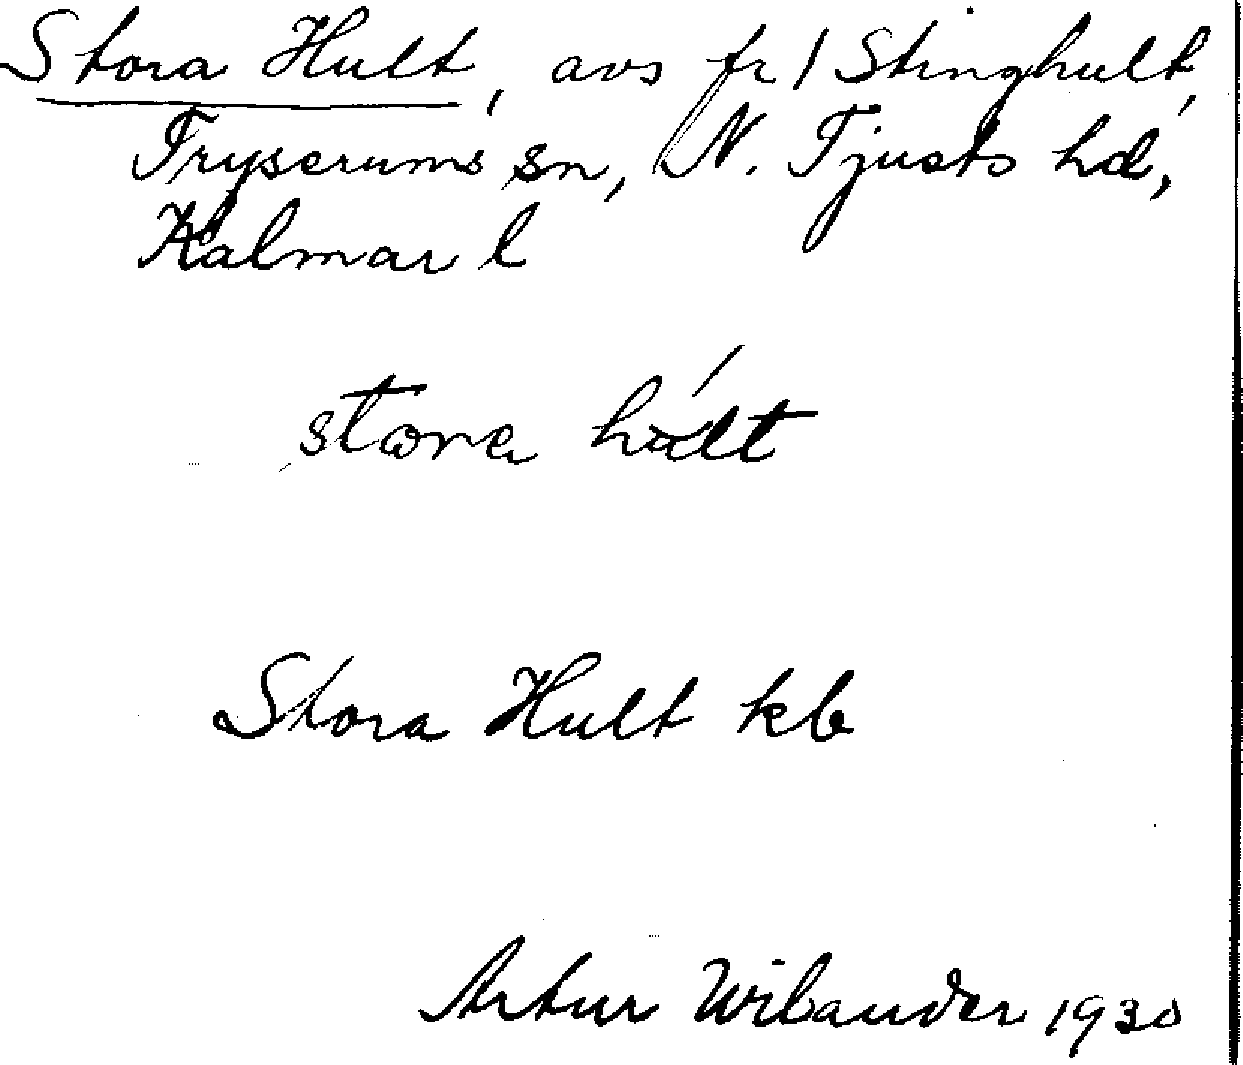 Stora Hult, avs fr / Stinghult,
Tryserums sn, N. Tjusts hd,
Kalmar l
stora hult
Stora Hult kb
Artur Wilander 1930